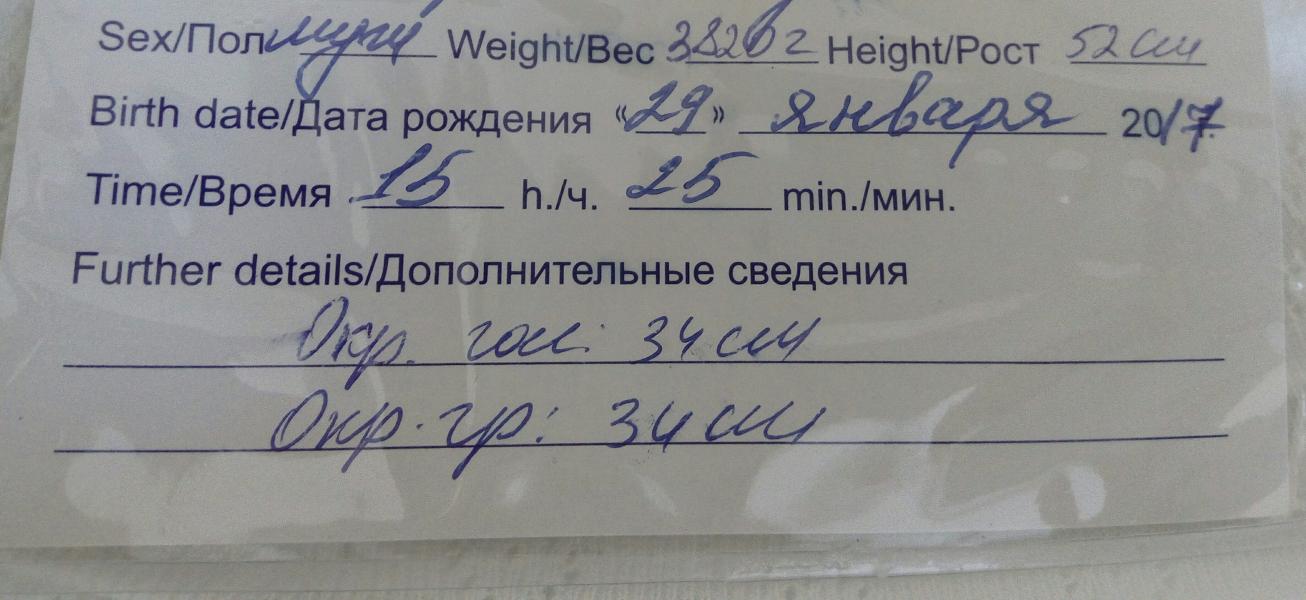 Sex/Пол муж Weight/Вес 3820 г Height/Рост 52 см
Birth date/Дата рождения «29» января 2017
Time/Время 15 h./ч. 25 min./мин.
Further details/Дополнительные сведения
Окр. гол: 34 см
Окр. гр: 34 см